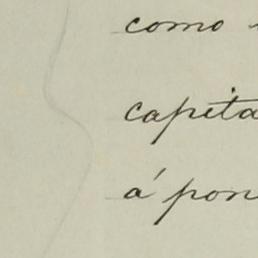 como
capita
á pon